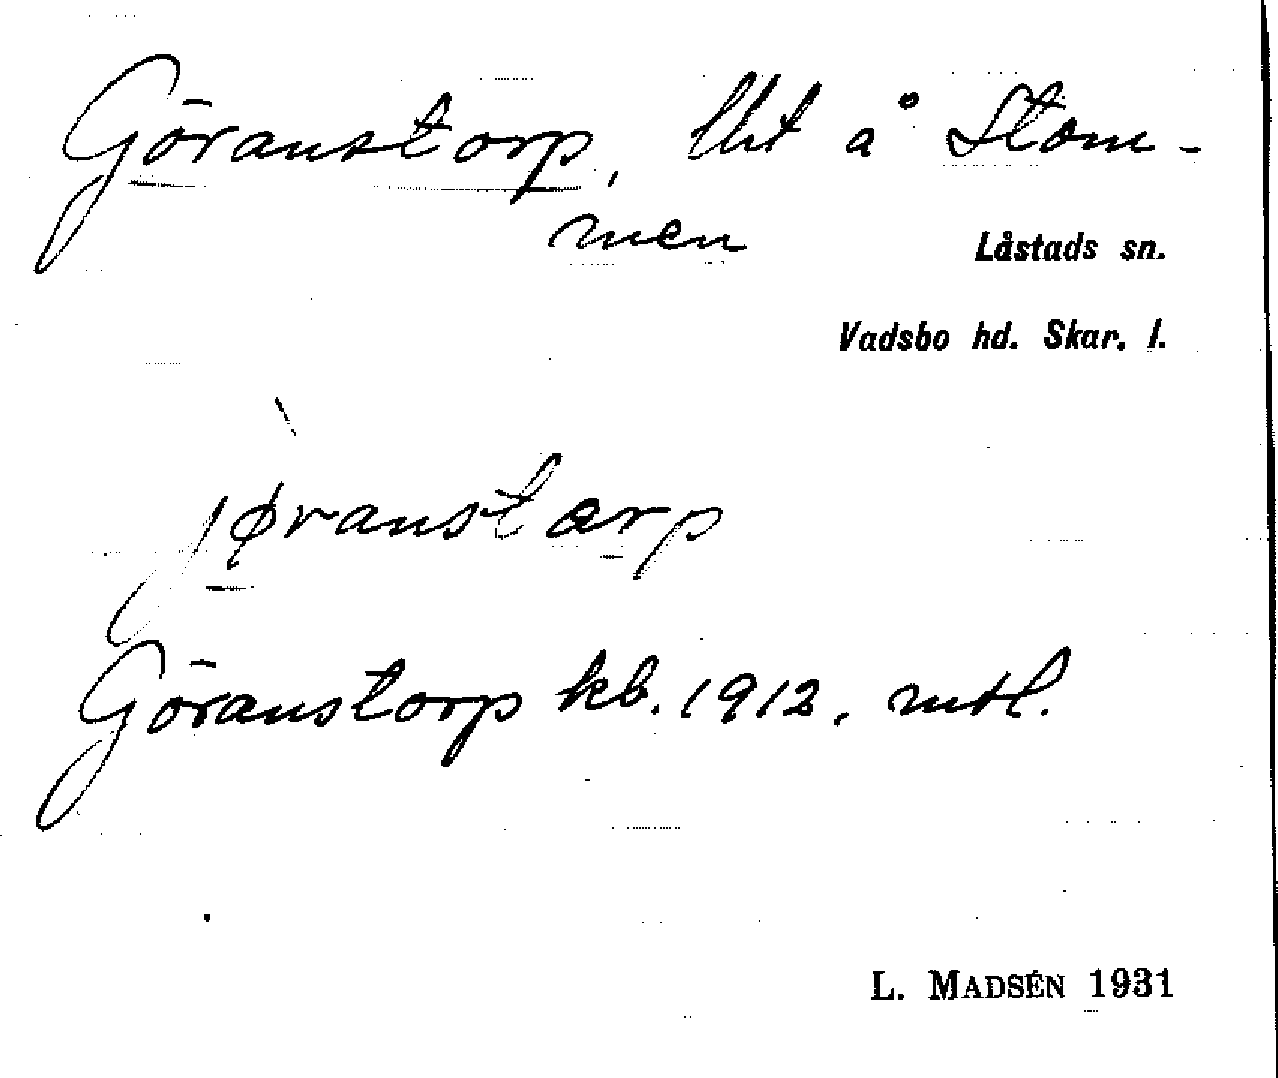 Göranstorp, lht å Stom-
men
Låstads sn.
Vadsbo hd. Skar. l.
jøranstarp
Göranstorp kb. 1912, mtl.
L. MADSÉN 1931